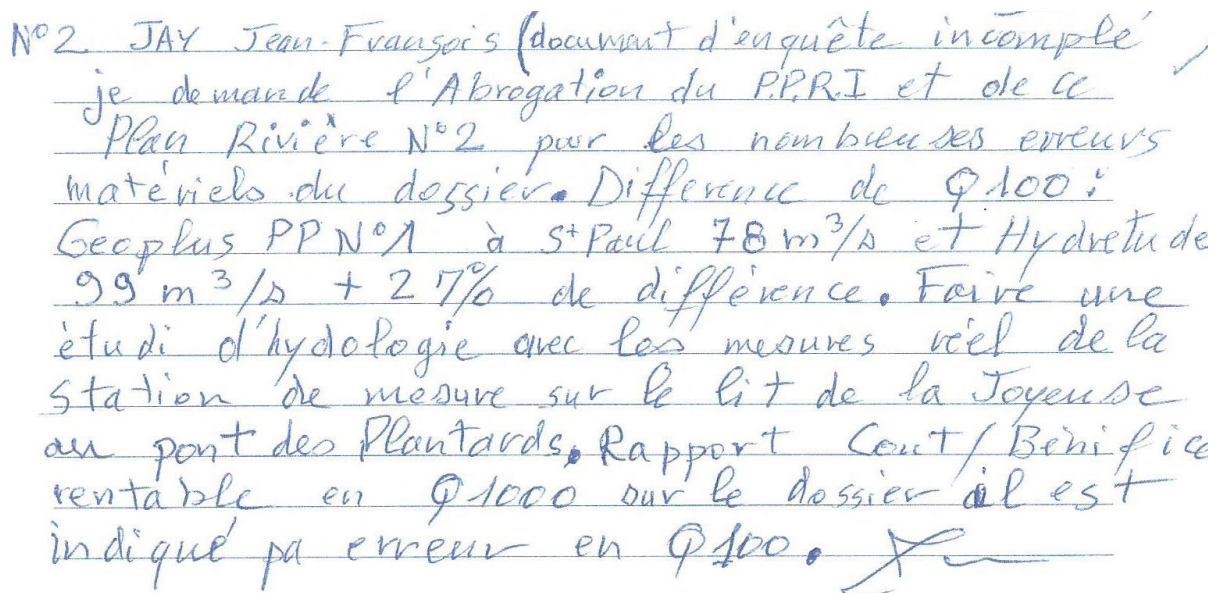 N°2 JAY Jean-François (document d'enquête incomplé
je demande l'Abrogation du P.P.R.I et de ce
Plan Rivière N°2 pour les nombreuses erreurs
matériels du dossier. Différence de Q100 :
Geoplus PP N°1 à St Paul 78 m³/s et Hydretude
99 m³/s + 27% de différence. Faire une
étudi d'hydologie avec les mesures réel de la
station de mesure sur le lit de la Joyeuse
au pont des Plantards. Rapport Cout/Bénifice
rentable en Q1000 sur le dossier il est
indiqué pa erreur en Q100.